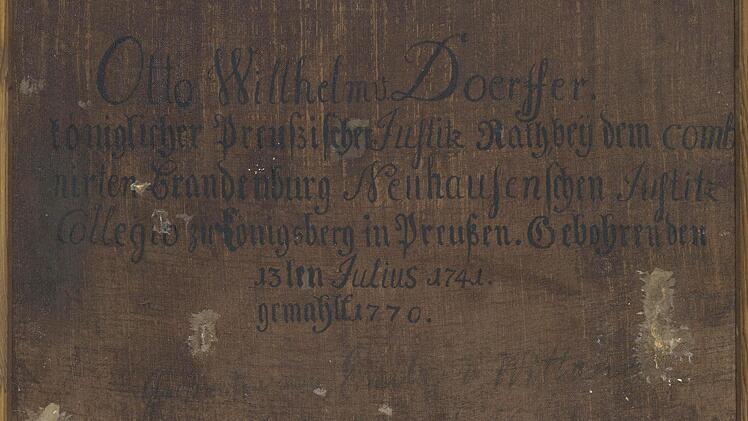 Otto Willhelm v. Doerffer.
Königlicher Preußischer Justitz Rath bey dem comb
nirten Brandenburg Neuhausenschen Justitz
Collegio zu Königsberg in Preußen. Gebohren den
13ten Julius 1741.
gemahlt 1770.